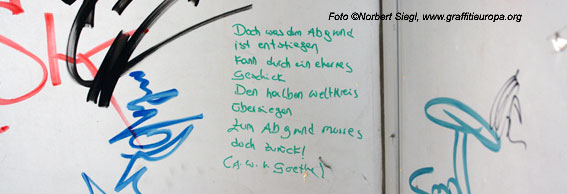 Foto ©Norbert Siegl, www.graffitieuropa.org
Doch was dem Abgrund
ist entstiegen
Kann durch ein ehernes
Geschick
Den halben Weltkreis
übersiegen
zum Abgrund muss es
doch zurück!
(J. W. v. Goethe)